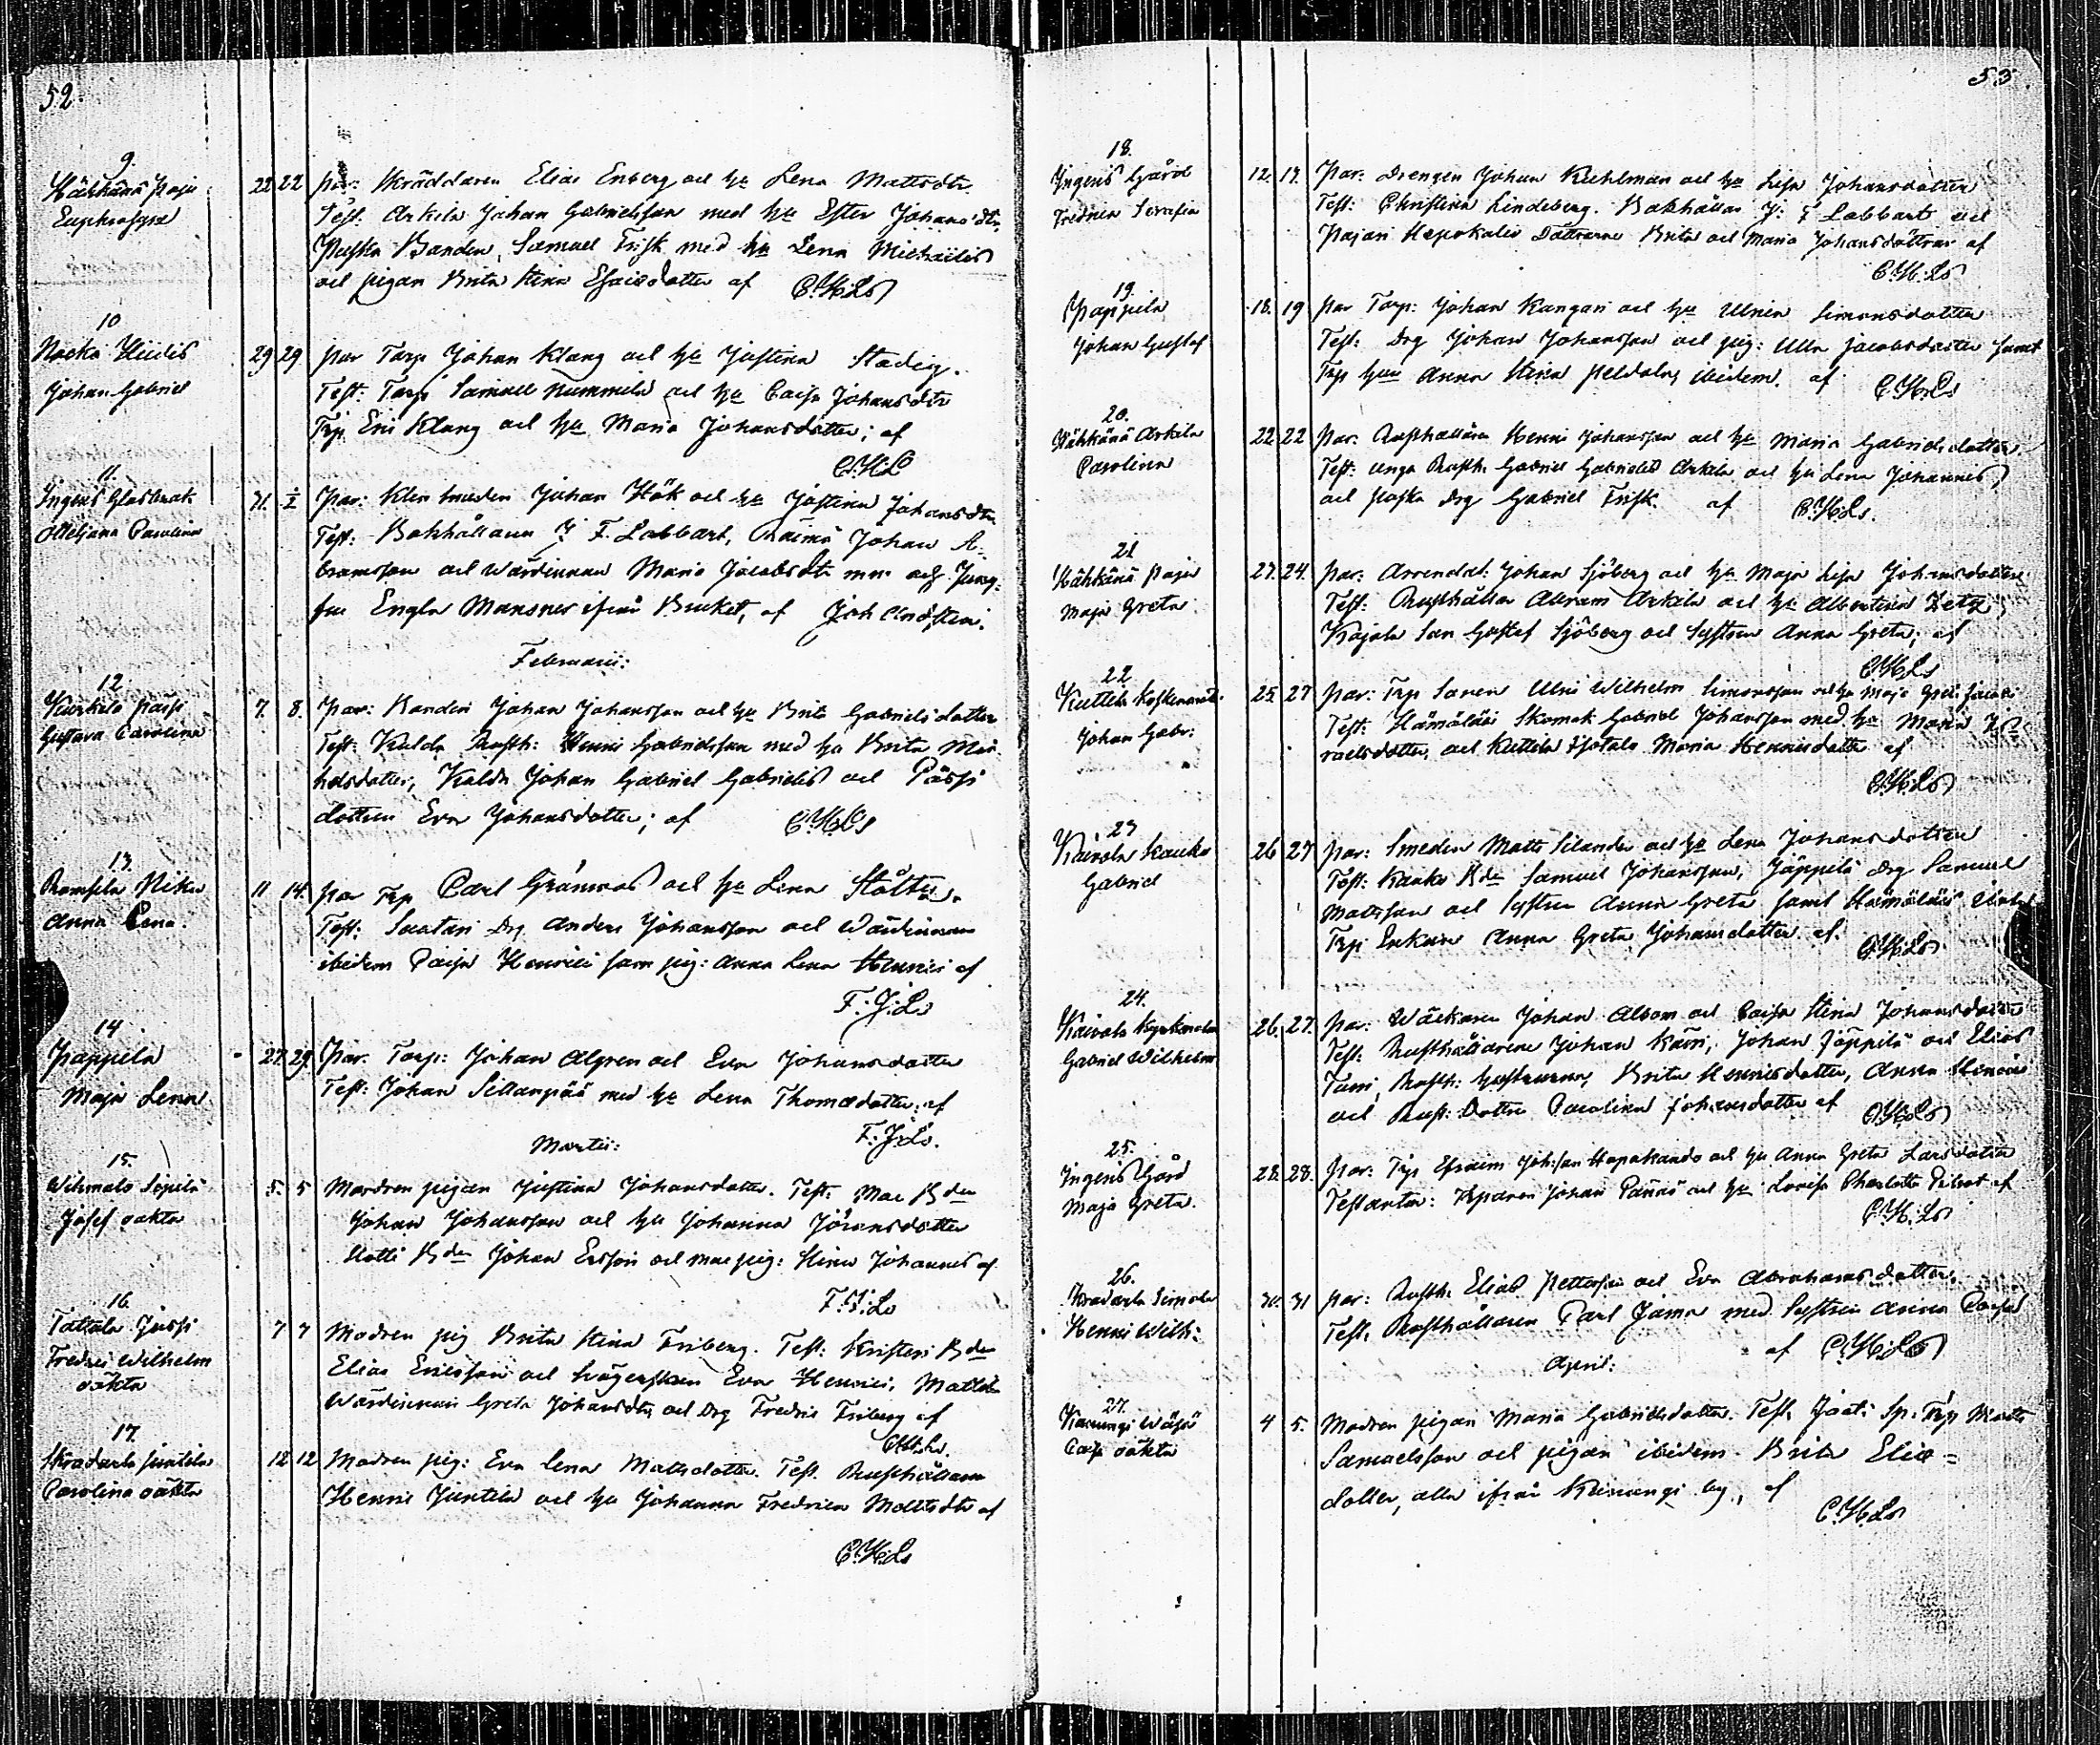 52.
9.
Kähkänä Paju
Euphrosyna
22 22 par: Skräddaren Elias Enberg och h:u Lena Mattsdtr.
Test: Arkila Johan Gabrielsson med h:u Ester Johansdtr,
Bonden, Samuel Frisk med h:u Lena Michaëlis
och pigan Brita Stina Esaiædotter af C.H.Ls
10
Nacka Hiidis
Johan Gabriel
29 29. par Torp Johan Klang och h:u Justina Stadig.
Test: Torp Samuel Nummila och h:u Caisa Johansdtr
Trp Eric Klang och h:u Maria Johansdotter; af
C.H.L
11
Ingeris Glasbruk
Carolina
31. par: Klensmeden Johan Hök och h:u Justina Johansdtr.
Test: Bokhållaren J F. Labbart, Johan A-
bramsson och Wärdinnan Maria Jacobsdtr och Jung-
fru Engla Mansner ifrån Bruket, af Joh
Februarii:
12.
Kurkela Pässi
Gustava Carolina
7. 8. Par: Bonden Johan Johansson och h:u Brita Gabrielsdotter
Test: Kulda Rusth: Henric Gabrielsson med h:u Brita Mic-
helsdotter, Kulda Johan Gabriel Gabrielis och Pässi
dottren Eva Johansdotter; af C.H.Ls
13.
Ramsila Niku
Anna Lena.
11 14. par Trp Carl Gränroos och h:u Lena Stålts.
Test: Suutari Drg Anders Johansson och Wärdinnan
ibidem Caisa Henrici sam pig: Anna Lena Henrici af
F. J. Ls
14
Pappila
Maja Lena
27. 29. Par. Torp: Johan Algren och Eva Johansdotter
Test: Johan Sillanpää med h:u Lena Thomædotter; af
F. J. Ls.
Martii:
15.
Wihmalo Sepilä
Josef oäkta
5. 5 Modren pigan Justina Johansdotter. Test: Mac B:den
Johan Johansson och h:u Johanna Jöransdotter
Hotti B:den Johan Ersson och Mac pig: Stina Johannes af
F. J. Ls
16.
Tattala Jussi
Fredric Wilhelm
oäkta
7 7 Modren pig Brita Stina Friberg. Test: Kristeri B:den
Elias Ericsson och Svägerskan Eva Henrici, Mattila
Wärdinnan Greta Johansdtr, och Drg Fredric Friberg af
C.H.Ls.
17.
Skradarla Juntila
Carolina oäkta
12 12 Modren pig: Eva Lena Mattsdotter. Test. Rusthållaren
Henric Juntila och h:u Johanna Fredrica Molstedtr af
C.H.Ls
53.
18.
Ingeris Gård
Fredrica Serafia
12. 17. Par: Drengen Johan Kuhlman och h:u Lisa Johansdotter
Test: Christina Lindeberg. Bokhållar J: F Labbart och
Pajari Hapokalio Döttrarne Brita och Maria Johansdöttrar af
C.H.Ls
19.
Pappila
Johan Gustaf
18. 19 par Torp: Johan Kangari och h:u Ulrica Simonsdotter
Test: Drg Johan Johansson och pig: Ulla Jacobsdotter samt
Trp h:u Anna Stina ibidem. af C.H.Ls
20.
Kähkänä Arkila
Carolina
22. 22 Par: Rusthållarn Henric Johansson och h:u Maria Gabrielsdotter
Test: unga Rusth. Gabriel Gabrielis Arkila och h:u Lena Johannes
och Drg Gabriel Frisk. af C.H.Ls.
21
Kähkänä Paju
Maja Greta
23. 24. Par: Arrendat: Johan Sjöberg och h:u Maja Lisa Johansdotter
Test: Rusthållar Abram Arkila och h:u Albertina Zetr,
Son Gustaf Sjöberg och Systern Anna Greta; af
C.H.Ls
22
Kuttila Koskenranta
Johan Gabr:
25. 27 Par: Trp Sonen Ulric Wilhelm Simonsson och h:u Maja Greta Jacobi
Test: Hämäläis Skomak Gabriel Johansson med h:u Maria Is-
raelsdotter, och Kuttila Maria Henricsdotter af
C.H.Ls
23
Raivola Kauko
Gabriel
26 27 par: Smeden Matts Silander och h:u Lena Johansdotter
Test: Kauko B:den Samuel Johansson, Jäppilä Drg Samuel
Mattsson och Systern Anna Greta samt Hämäläis
Trp Enkan Anna Greta Johansdotter. af. C.H.Ls.
24.
Raivola
Gabriel Wilhelm
26. 27. par: Johan Albom och Caisa Stina Johansdotter
Test: Rusthållarene Johan Kärri, Johan Jäppilä och Elias
Rusth: hustrurna, Brita Henricsdotter, Anna Henrici
och Rust: Dottren Carolina Johansdotter af C.H.Ls
25.
Ingeris Gård
Maja Greta.
28. 28. par: Trp Efraim Johsson Hapakando och h:u Anna Greta Larsdotter
Testantes: Johan och h:u Lovisa Charlotta af
C.H.Ls
26.
Skradarla Simola
Henric Wilh:
30. 31 par: Rusth. Elias Pettersson och Eva Abrahamsdotter.
Test, Rusthållaren Carl Jama med Systren Anna Caisa
af C.H.Ls
April:
27.
Kanungi Wäfsä
Caisa oäkta
4 5. Modren pigan Maria Gabrielsdotter. Test, Jaati Sp: Trp Matts
Samuelsson och pigan ibidem Brita Eliæ=
dotter, alla ifrån Kanungi by, af
C.H.Ls